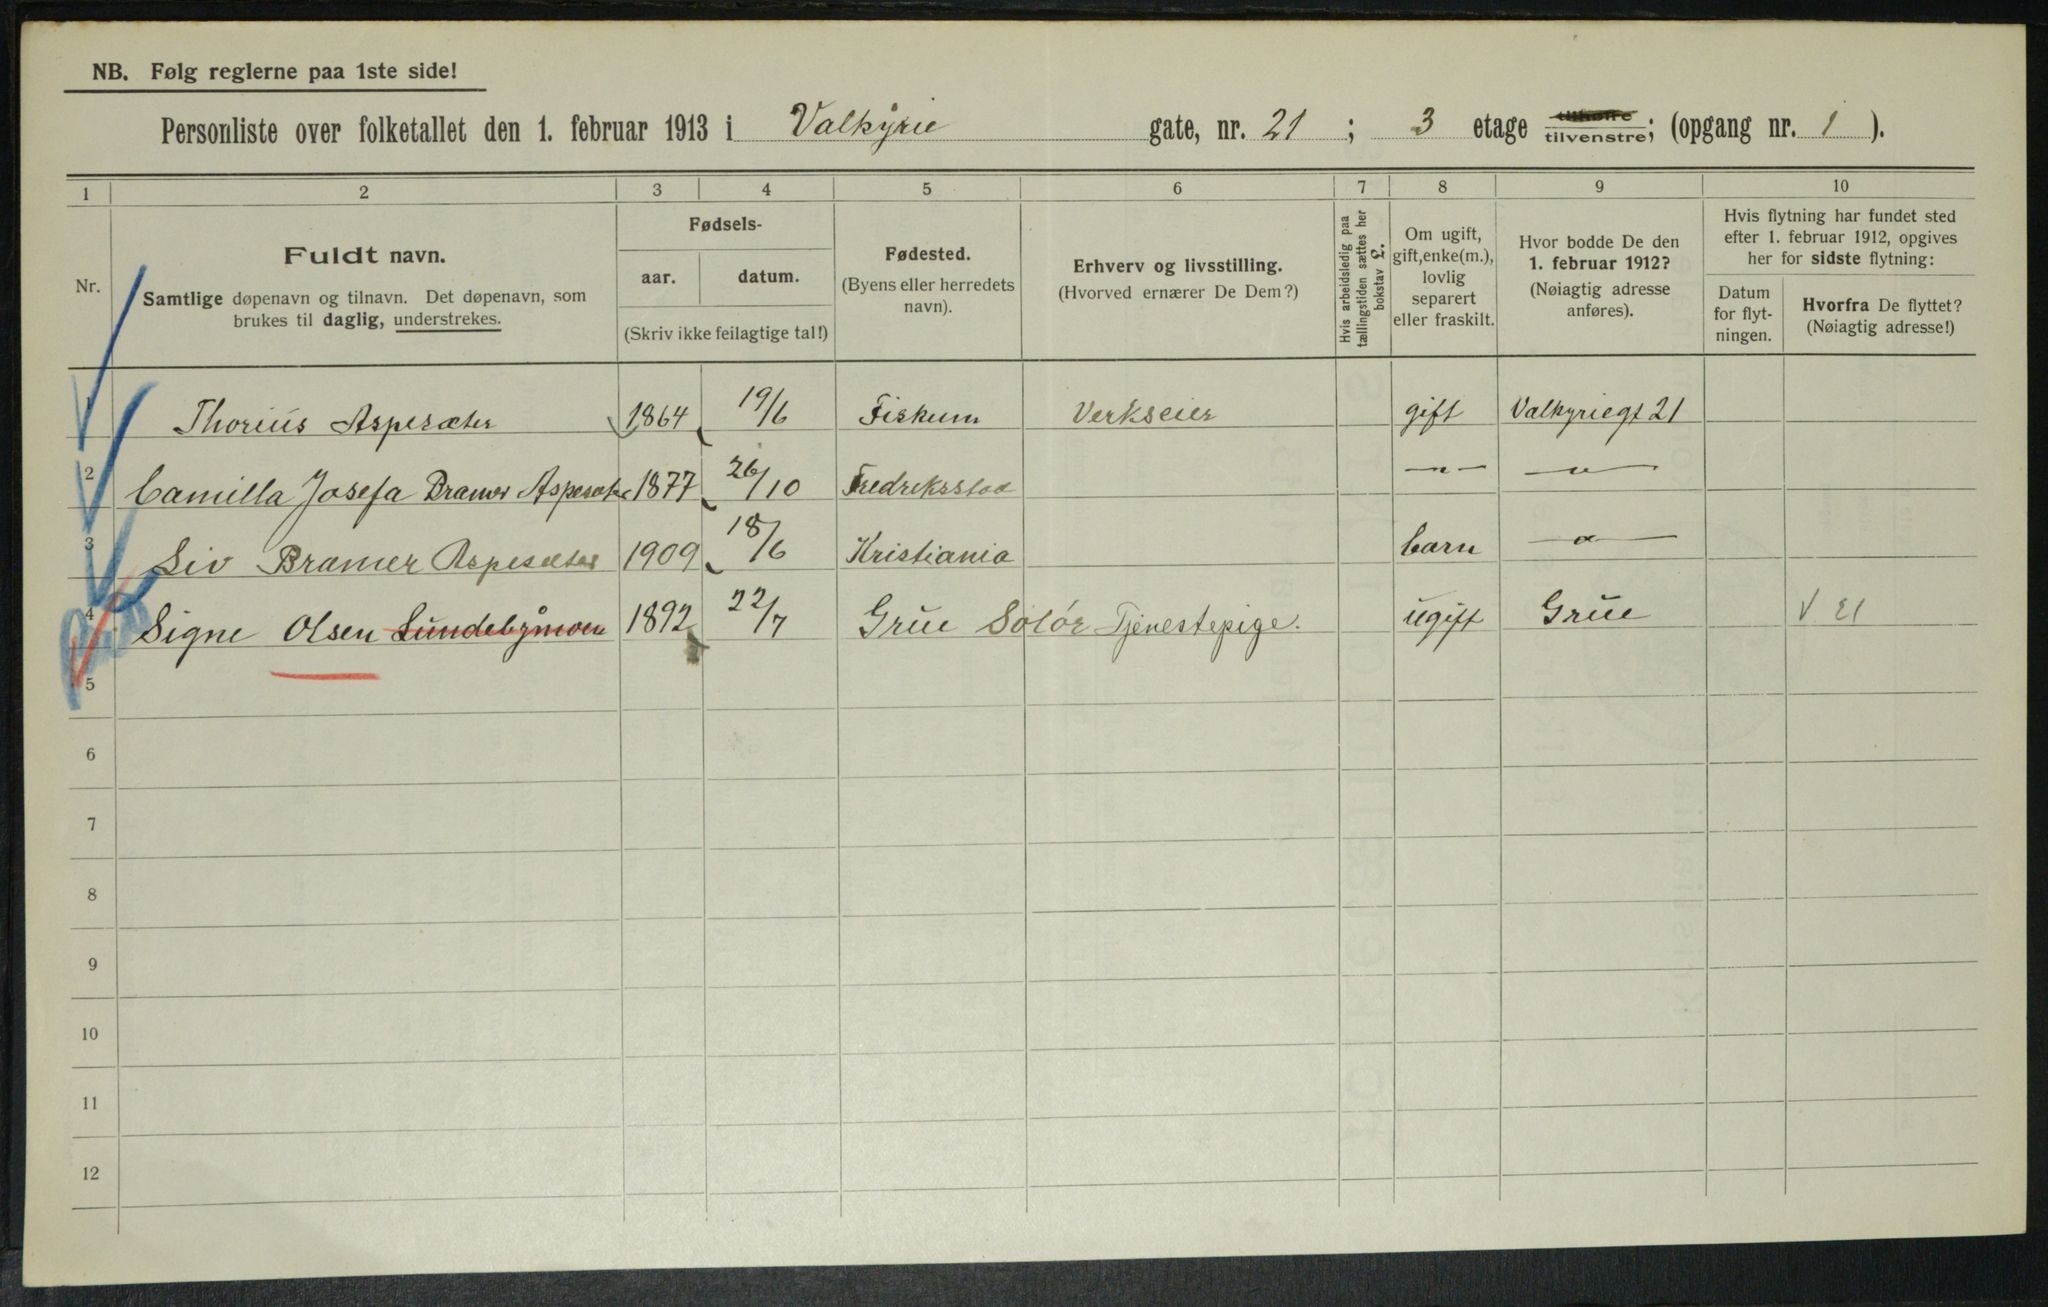 NB. Følg reglerne paa 1ste side!
Personliste over folketallet den 1. februar 1913 i Valkyrie gate, nr. 21 ; 3 etage tilhøire tilvenstre; (opgang nr. 1 ).
1 2 3 4 5 6 7 8 9 10
Nr.
Fuldt navn.
Samtlige døpenavn og tilnavn. Det døpenavn, som
brukes til daglig, understrekes.
Fødsels-
aar. datum.
(Skriv ikke feilagtige tal!)
Fødested.
(Byens eller herredets
navn).
Erhverv og livsstilling.
(Hvorved ernærer De Dem?)
Hvis arbeidsledig paa
tællingstiden sættes her
bokstav L.
Om ugift,
gift, enke(m.),
lovlig
separert
eller fraskilt.
Hvor bodde De den
1. februar 1912?
(Nøiagtig adresse
anføres).
Hvis flytning har fundet sted
efter 1. februar 1912, opgives
her for sidste flytning:
Datum
for flyt-
ningen.
Hvorfra De flyttet?
(Nøiagtig adresse!)
1 Thorius Aspesæter 1864 19/6 Fiskum Verkseier gift Valkyriegt 21
2 Camilla Josefa Bramer Aspesæter 1877 26/10 Fredriksstad —"— —"—
3 Siv Bramer Aspesæter 1909 18/6 Kristiania barn —"—
4 Signe Olsen Lundebymoen 1892 22/7 Grue Solør Tjenestepige. ugift Grue V El
5
6
7
8
9
10
11
12